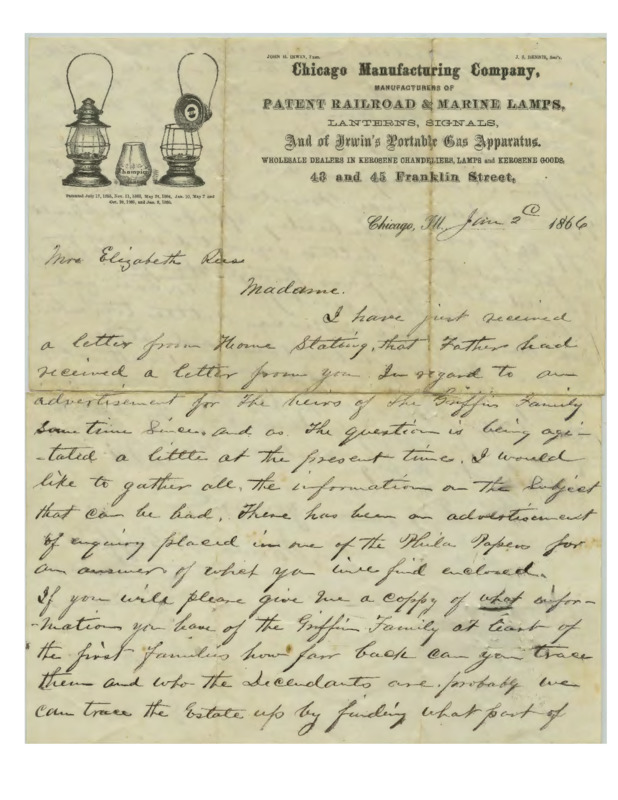 JOHN H. IRWIN, Pres.
J. S. DENNIS, Sec'y.
Chicago Manufacturing Company,
MANUFACTURERS OF
PATENT RAILROAD & MARINE LAMPS,
LANTERNS, SIGNALS,
And of Irwin's Portable Gas Apparatus.
WHOLESALE DEALERS IN KEROSENE CHANDELIERS, LAMPS and KEROSENE GOODS,
43 and 45 Franklin Street,
Champion
Chicago, Ill. Jan 2d 1866
Mrs Elizabeth Rees
Madame.
I have just received
a letter from Home Stating, that Father had
received a letter from you In regard to an
advertisement for The heirs of The Griffin Family
Sometime Since, and as The question is being agi-
-tated a little at the present time, I would
like to gather all, the information on the Subject
that can be had, There has been an advertisement
of enquiry placed in one of the Phila Papers for
an answer of what you will find enclosed.
If you will please give me a coppy of what infor-
-mation you have of the Griffin Family at least of
the first families how farr back can you trace
them and who the Decendants are, probably we
can trace the Estate up by finding what part of